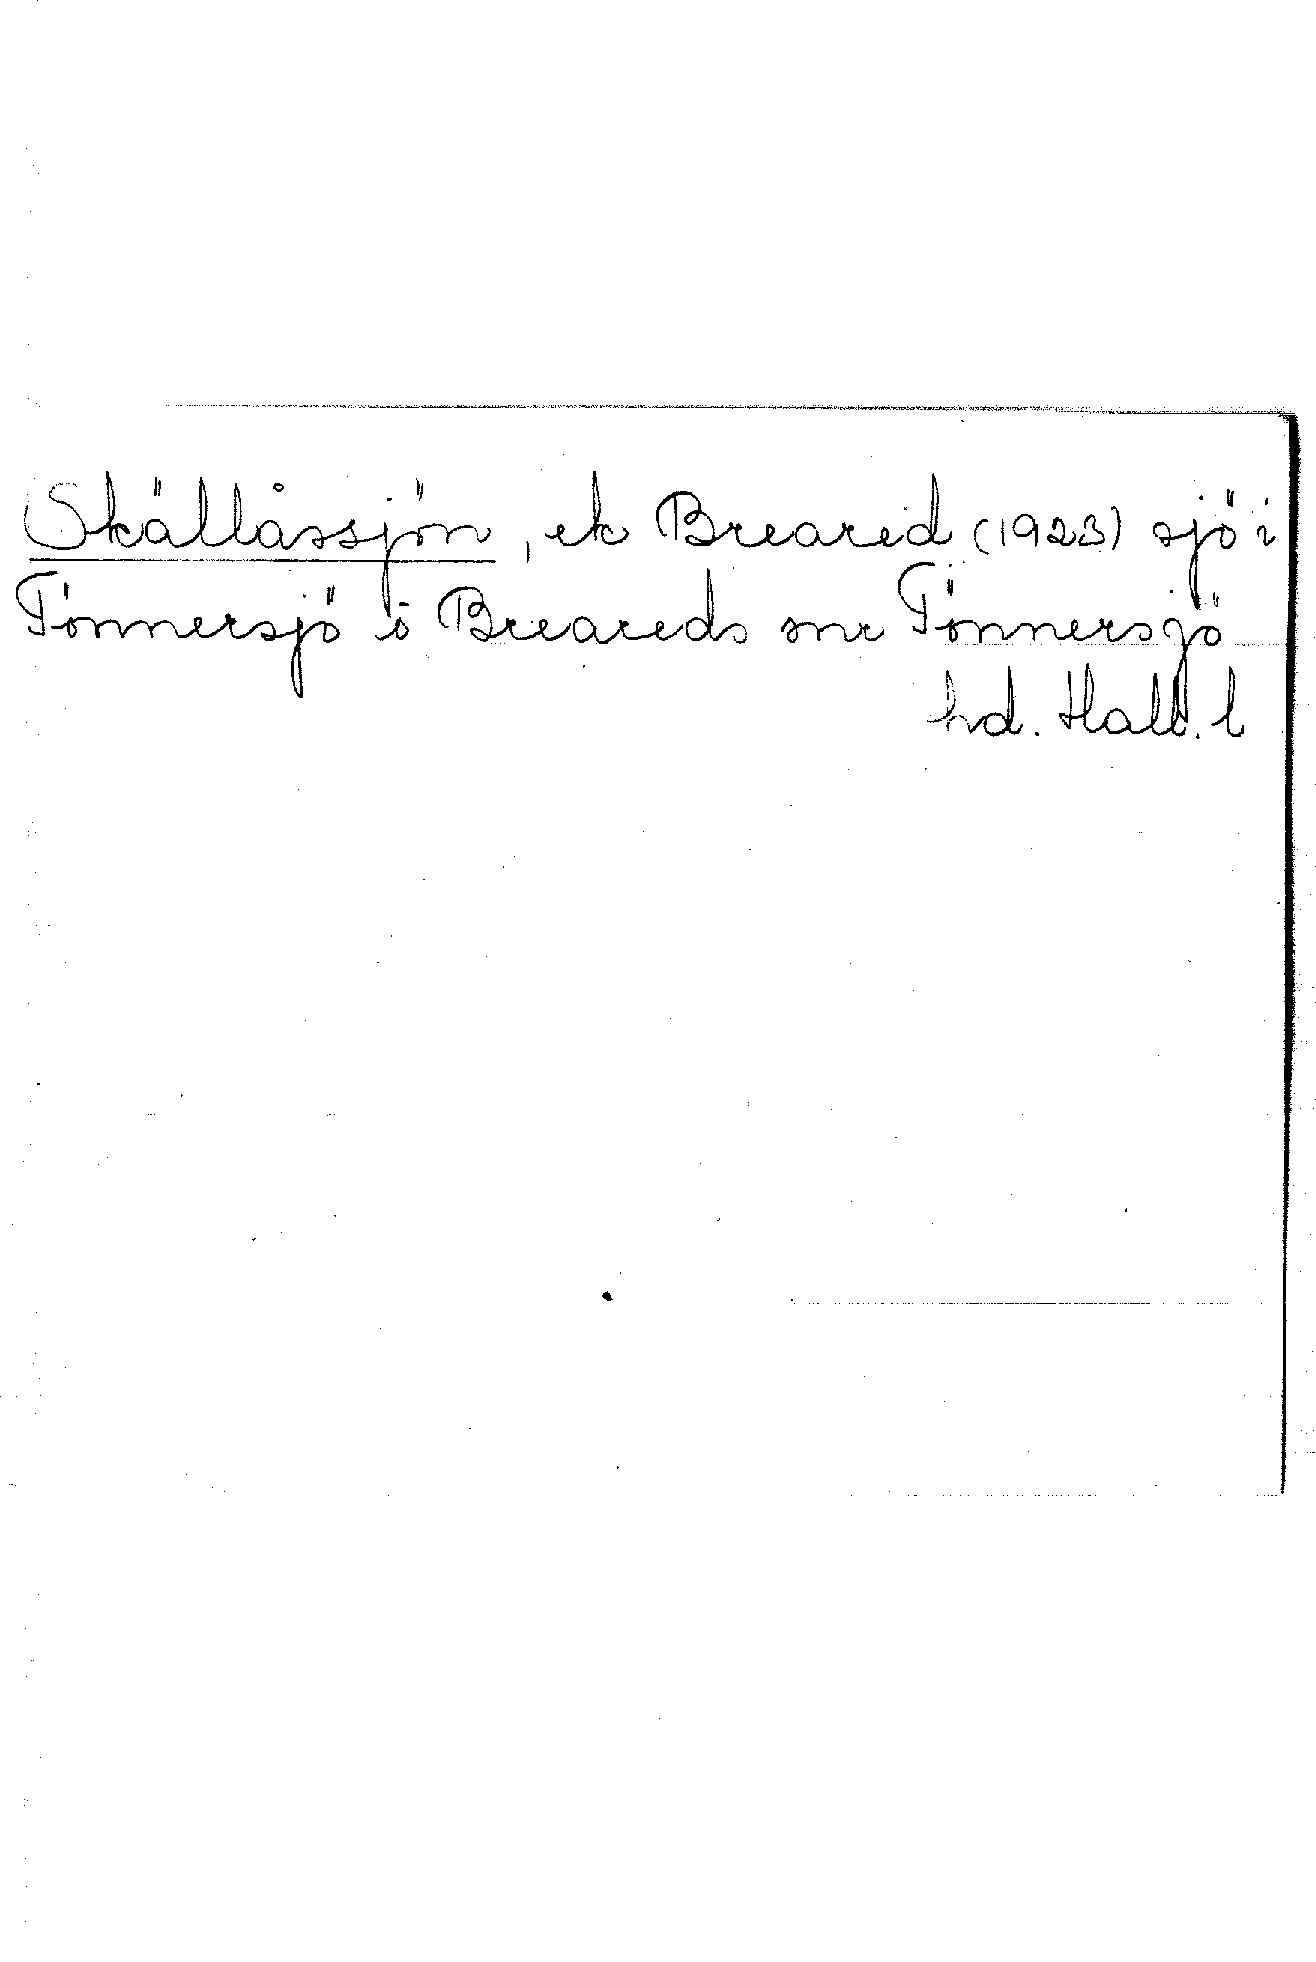 Skällåssjön, ek Breared (1923) sjö i
Tönnersjö o Breareds snr Tönnersjö
hd. Hall. l